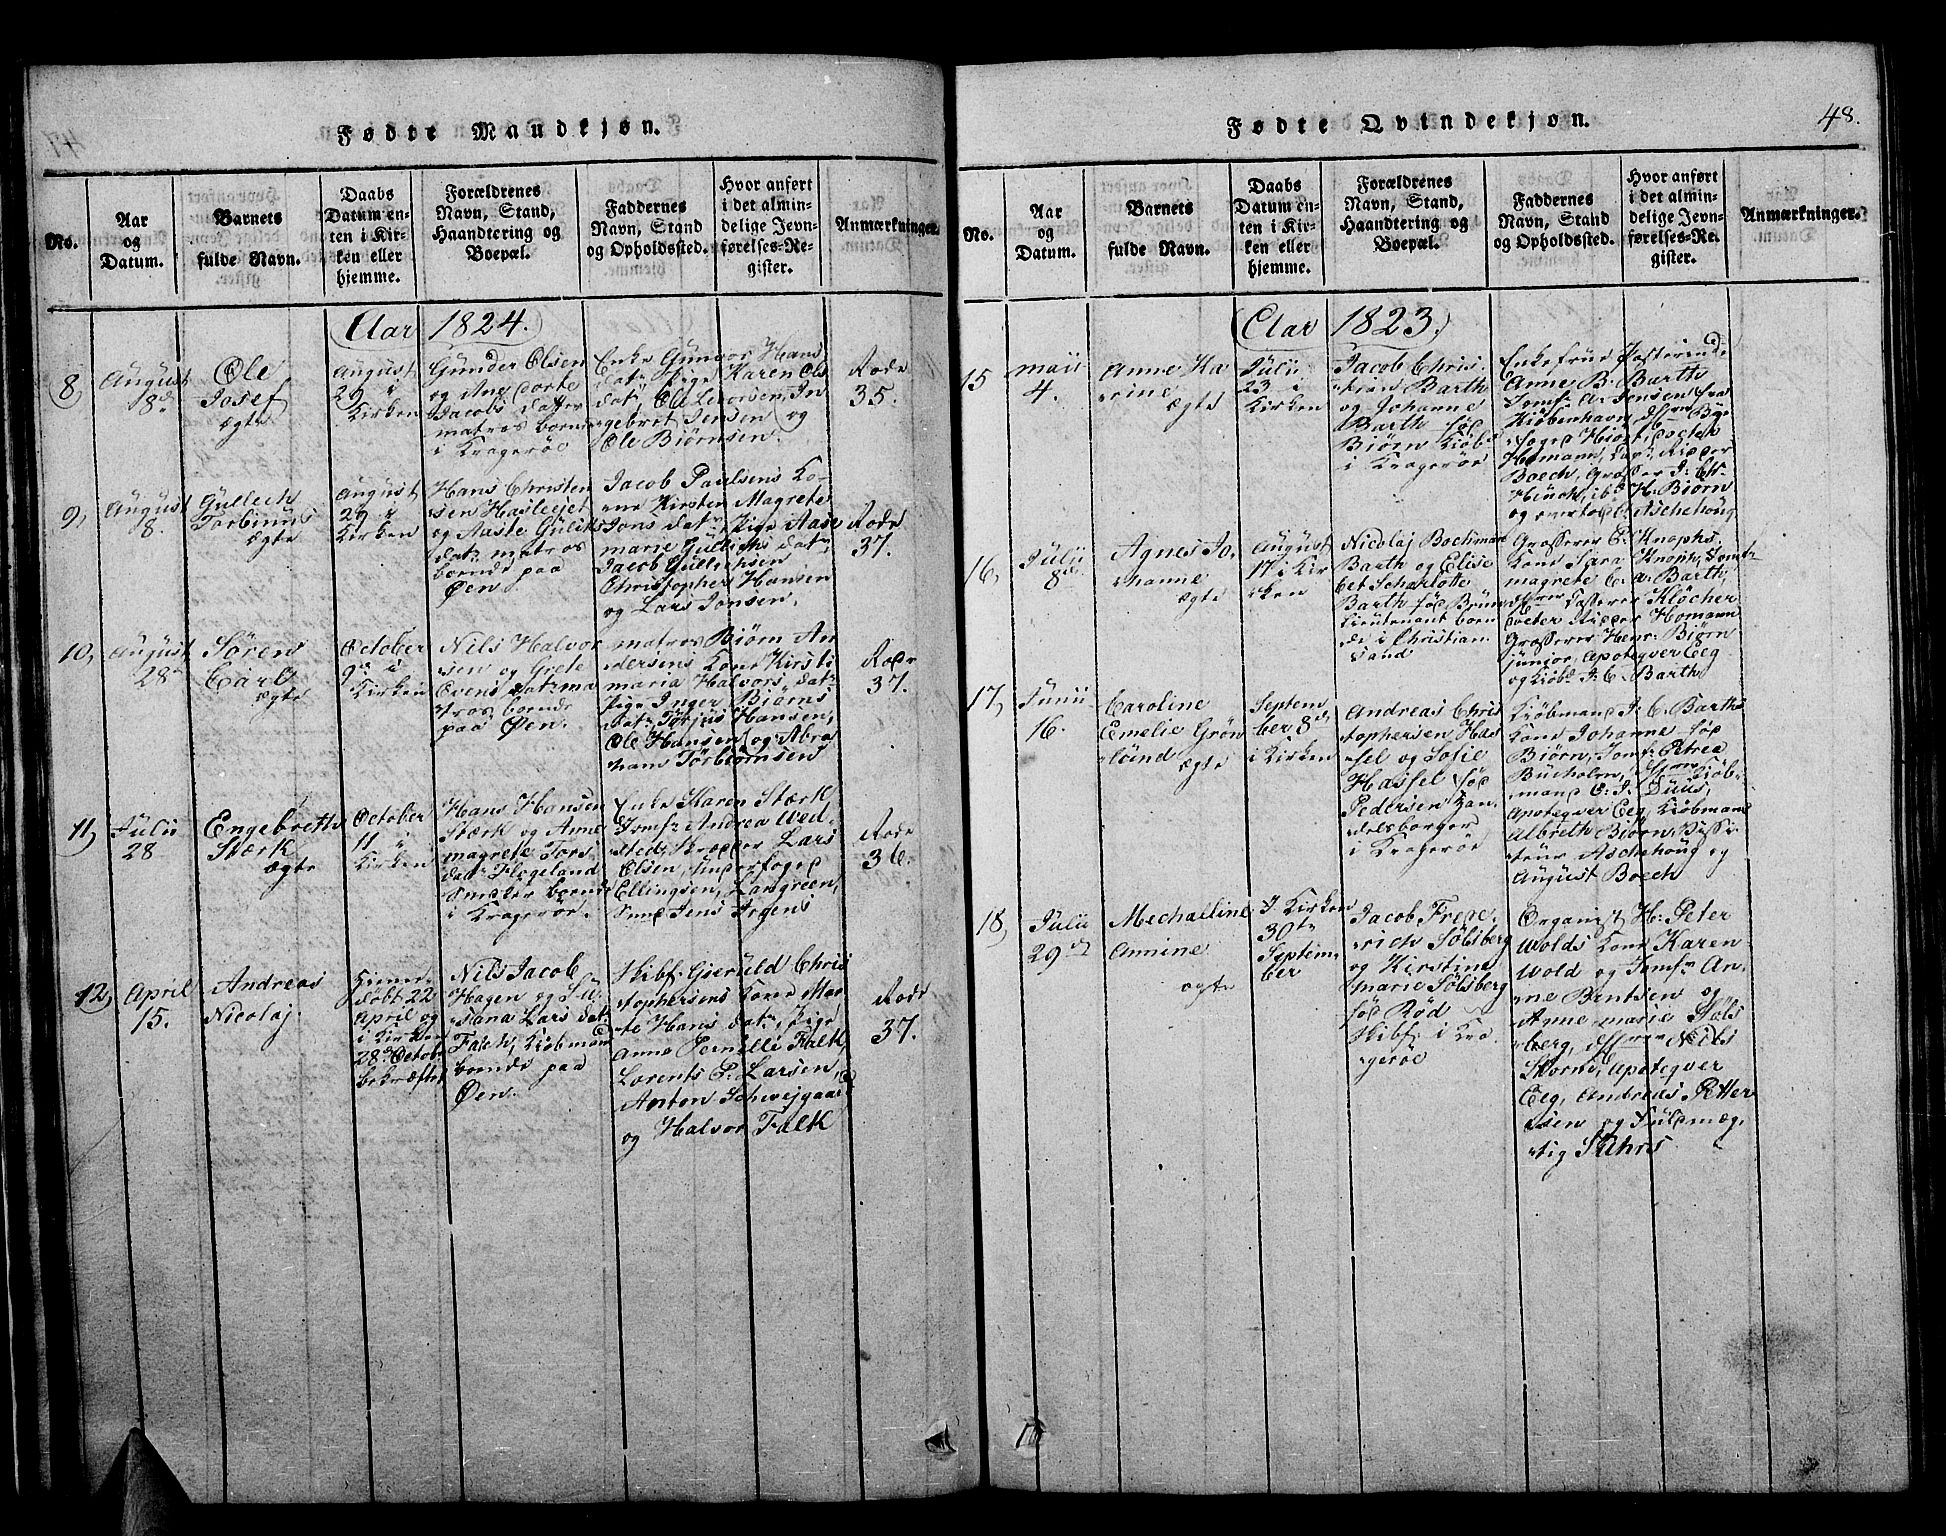 Fødte Mandkjøn.
No.
Aar
og
Datum.
Barnets
fulde Navn.
Daabs
Datum en-
ten i Kir-
ken eller
hjemme.
Forældrenes
Navn, Stand,
Haandtering og
Boepæl.
Faddernes
Navn, Stand
og Opholdssted.
Hvor anført
i det almin-
delige Jevn-
førelses-Re-
gister.
Anmærkninger.
Aar 1824.
8,
August
8de
Ole
Josef
ægte
August
29 i
Kirken
Gunder Olsen
og Ane Dorte
Jacobs datter
matros boende
i Kragerøe
Enke Gunvor Hans
datr, Pige Karen Ols
datr, Ole Levorsen, In
gebret Jensen og
Ole Biørnsen
Rode
35.
9,
August
8.
Gullech
Torbinius
ægte
August
29 i
Kirken
Hans Christen
sen Hasleejet
og Aaste Güliks
datr matros
boende paa
Øen
Jacob Paulsens Ko-
ne Kirsten Magrete
Jons datr, Pige Aase
marie Gullichs datr,
Jacob Gullichsen
Christopher Hansen
og Lars Jonsen,
Rode
37.
10,
August
28de
Søren
Carl
ægte
October
9de i
Kirken
Nils Halvor
sen og Grete
Evens datr ma
tros boende
paa Øen.
matros Biørn An
dersens Kone Kirsti
maria Halvors datr
Pige Inger Biørns
datr Torjus Hansen,
Ole Hansen og Abra
ham Torbiørnsen
Rode
37.
11,
Julii
28
Engebreth
Stærk
ægte
October
11 i
Kirken
Hans Hansen
Stærk og Anne
magrete Tors
datr Flogeland
Smeker boende
i Kragerøe.
Enke Karen Stærk
Jomfr Andrea Wed
sted, Skræder Lars
Olsen, Underfoged
Ellingsen, Langreen,
Smed Jens Irgens
Rode
36.
12,
April
15.
Andreas
Nicolaj
Hiemme-
døbt 22
April og
i Kirken
28de Octobr
bekræftet
Nils Jacob
Hagen og Sü-
sana Lars datr
Falch, Kiøbmand
boende paa
Øen.
Skibfr Gieruld Chris
tophersens Kone Mar
te Hans datr, Pige
Anne Pernille Falk,
Lorents P. Larsen,
Anton Schweigaard
og Halvor Falk
Rode
37.
Fødte Qvindekjøn.
48.
No.
Aar
og
Datum.
Barnets
fulde Navn.
Daabs
Datum en-
ten i Kir-
ken eller
hjemme.
Forældrenes
Navn, Stand,
Haandtering og
Boepæl.
Faddernes
Navn, Stand
og Opholdssted.
Hvor anført
i det almin-
delige Jevn-
førelses-Re-
gister.
Anmærkninger.
Aar 1823.
15
maii
4.
Anne Ka
rine
ægte
Julii
23 i
Kirken
Jacob Chris
tian Barth
og Johanne
Barth fød
Biørn Kiøbmd
i Kragerøe
Enkefrue
Anne B. Barth
Jomfr A. Jensen fra
Kiøbenhavn, Dhrr By
foged Hiort,
Homann,
Boech,
H. Biørn
og C. Aschehoug
16,
Julii
8de
Agnes Jo
hanne
ægte
August
17 i Kir
ken
Nicolaj Bochman
Barth og Elise
bet Scharlotte
Barth fød Brün
Lieutenant boen
de i Christian
sand
Grosserer P. Knophs
Kone Sara Knoph, Jomfr
magrete C. A. Barth,
Kløcker
Homann
Grosserer Henr. Biørn
junior, Apoteqver Eeg
og Kiøbd J. C. Barth
17,
Junii
16.
Caroline
Emelie Grøn
lund
ægte
Septem
ber 8de
i Kirken
Andreas Chris
tophersen Has
sel og Sofie
Hassel fød
Pedersen Han,
delsborger
i Kragerøe
Kiøbmand J. C. Barths
Kone Johanne fød
Biørn, Jomfr Petrea
Bucholm, Dhrr Kiøb-
mand O. J. Düüs,
Apoteqver Eeg, Kiøbmand
Albreth Biørn, Bissi-
teur Aschehoug og
August Boech
18,
Julii
29de
Mechaeline
Annine
ægte
I Kirken
30te
Septem-
ber
Jacob Frede-
rich Sølsberg
og Kirstine
marie Sølsberg
fød Rød
Skibfr i Kra
gerøe
Organist H. Peter
Wolds Kone Karen
Wold og Jomfr An-
ne Bentsen og
Anne marie Søls
berg, Dhrr Nils
Skorne, Apoteqver
Eeg, Andreas Petter
sen og Fuldmæg.
tig Suhrs